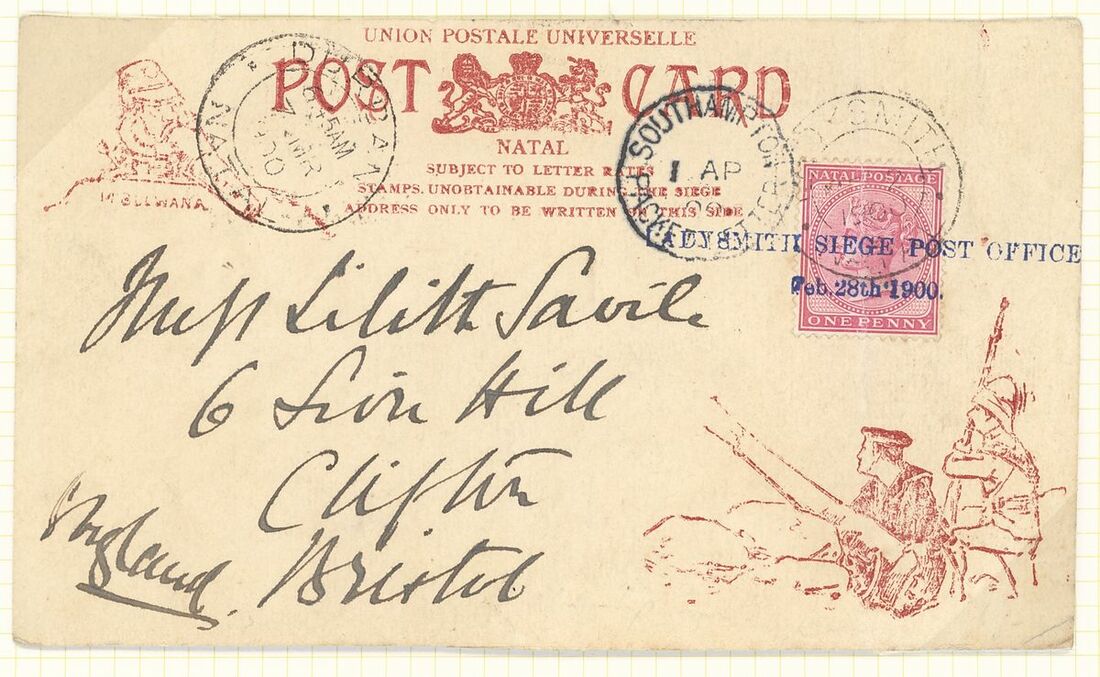 UNION POSTALE UNIVERSELLE
POST CARD
NATAL
SUBJECT TO LETTER RATES
STAMPS UNOBTAINABLE DURING THE SIEGE
ADDRESS ONLY TO BE WRITTEN ON THIS SIDE
NATAL
AM
MR
00
SOUTHAMPTON
1 AP
PACKET LETTER
LADYSMITH
NATAL POSTAGE
ONE PENNY
LADYSMITH SIEGE POST OFFICE
Feb. 28th 1900.
Miss Lilith Savile
6 Sion Hill
Clifton
Bristol
England